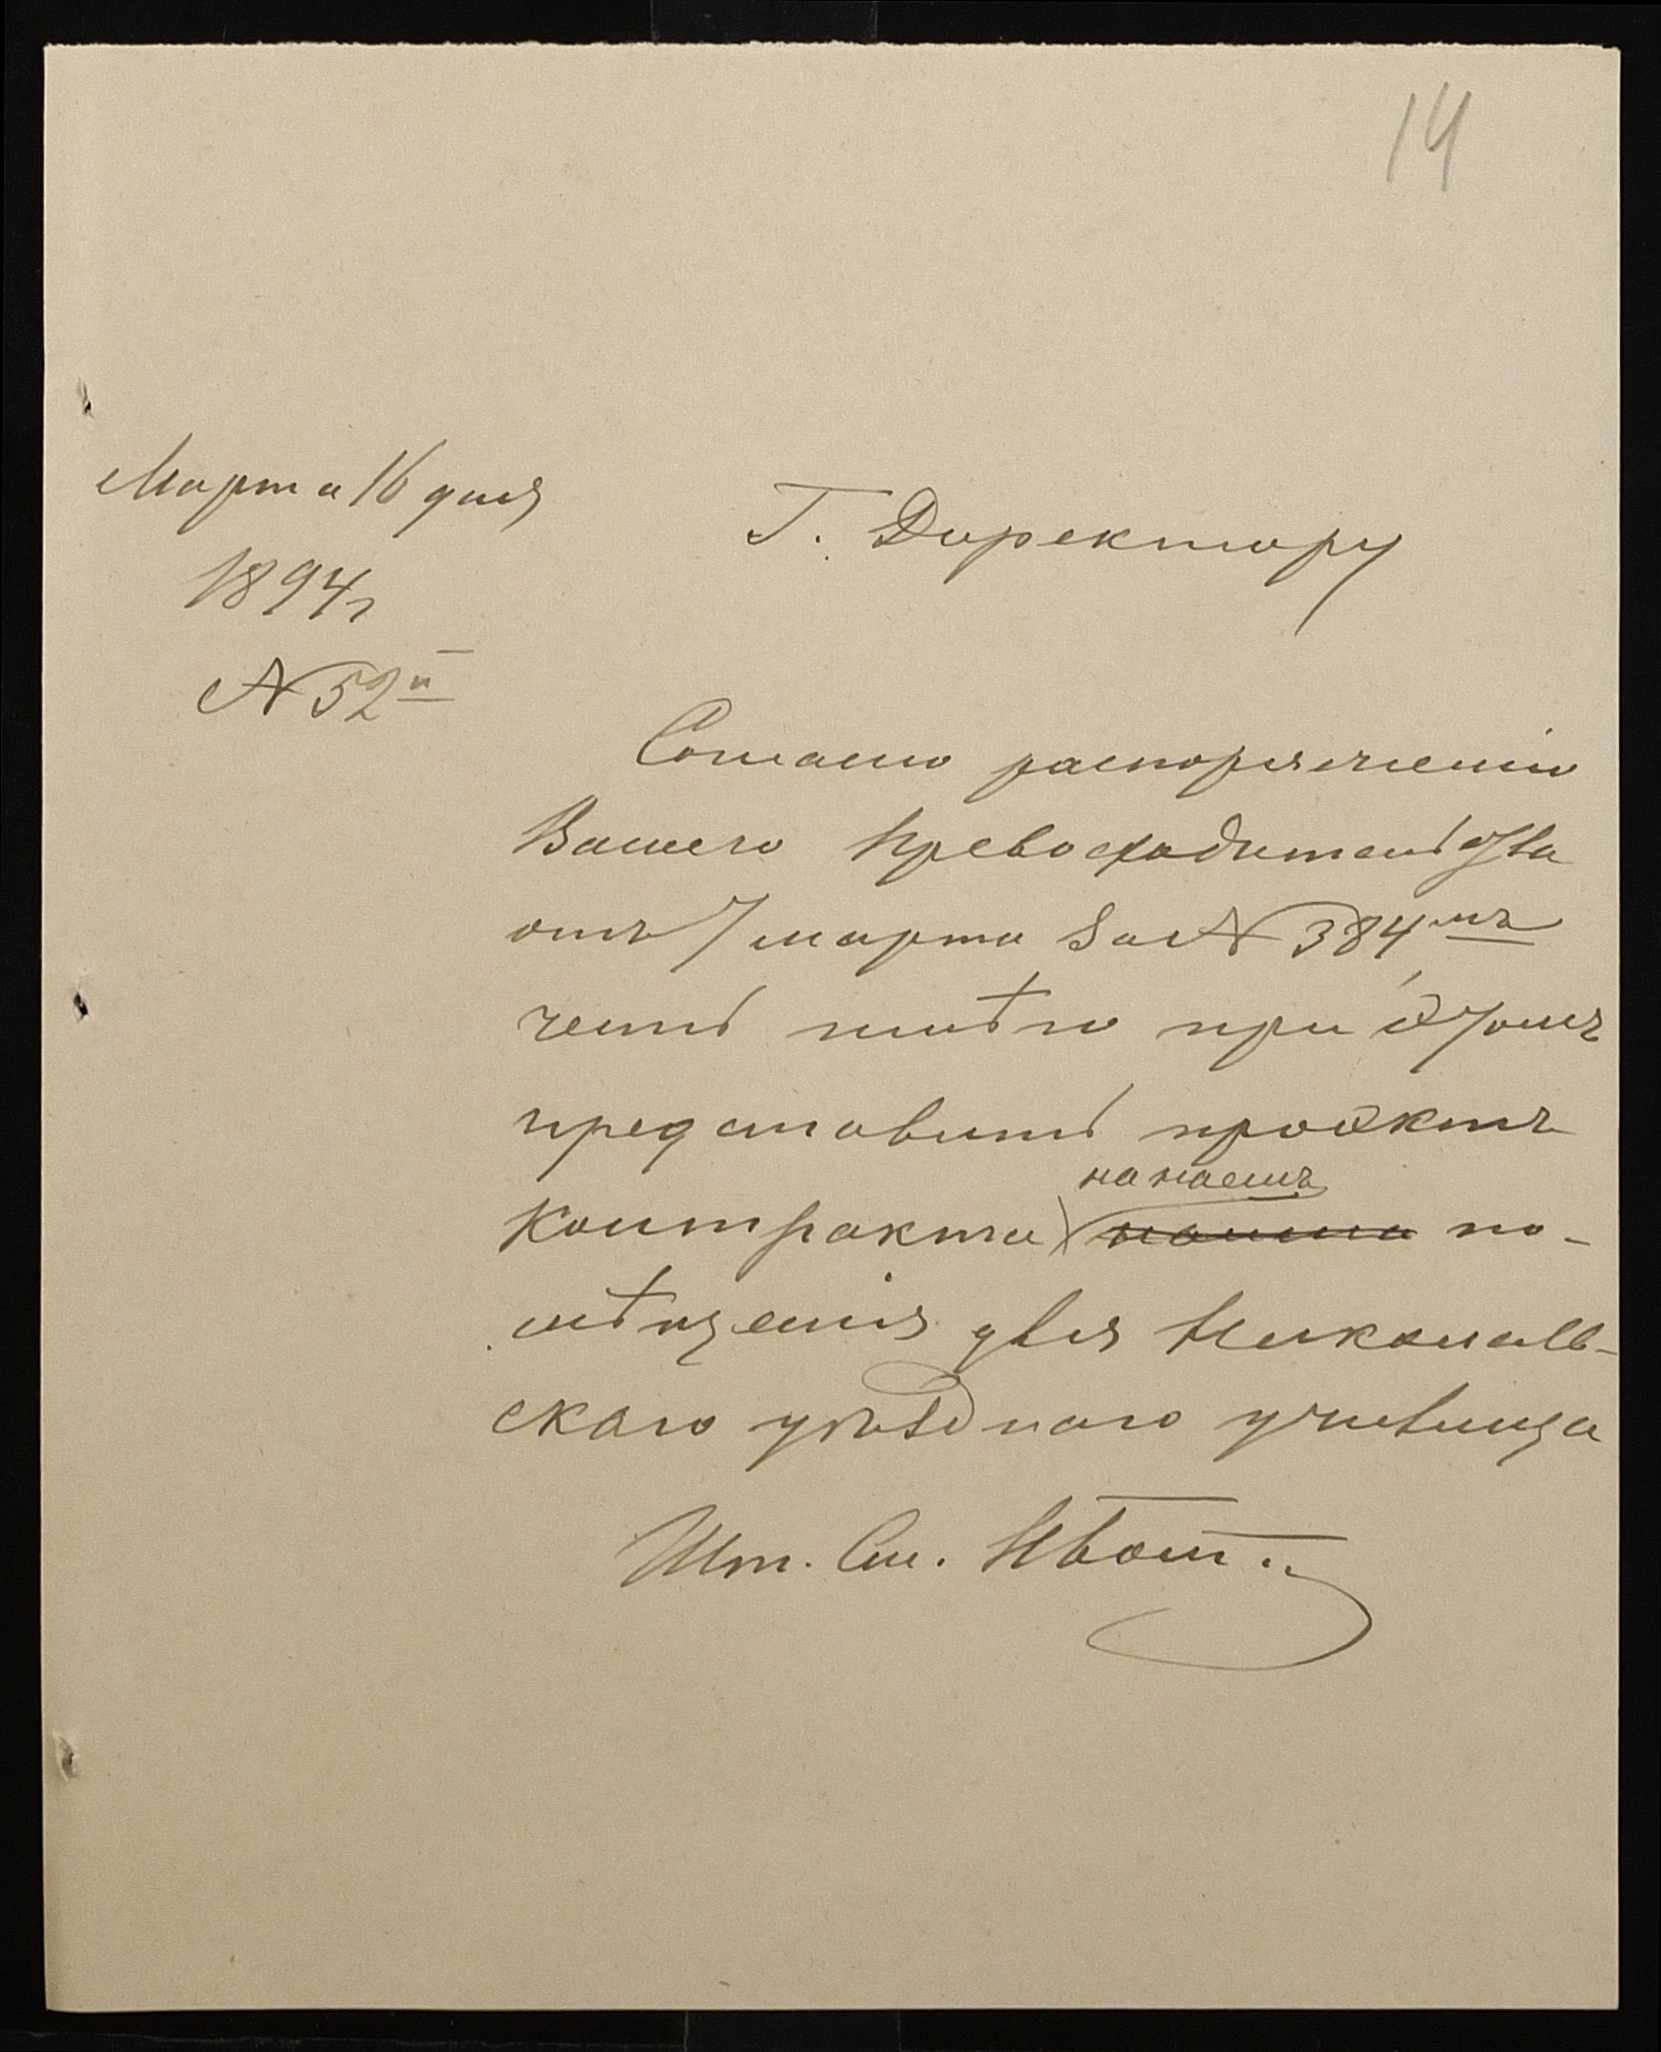 14
Марта 16 дня
1894 г
№ 52й
Г. Директору
Согласно распоряженію
Вашего Превосходительства
отъ 7 марта за № 384мъ
честь имѣю при этомъ
представить проэктъ
на наемъ
Контракта найма по-
мѣщенія для Николаев-
скаго уѣзднаго училища
Шт. См.